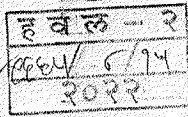 हवल - २
९९६५/ ८/१५
२०२२